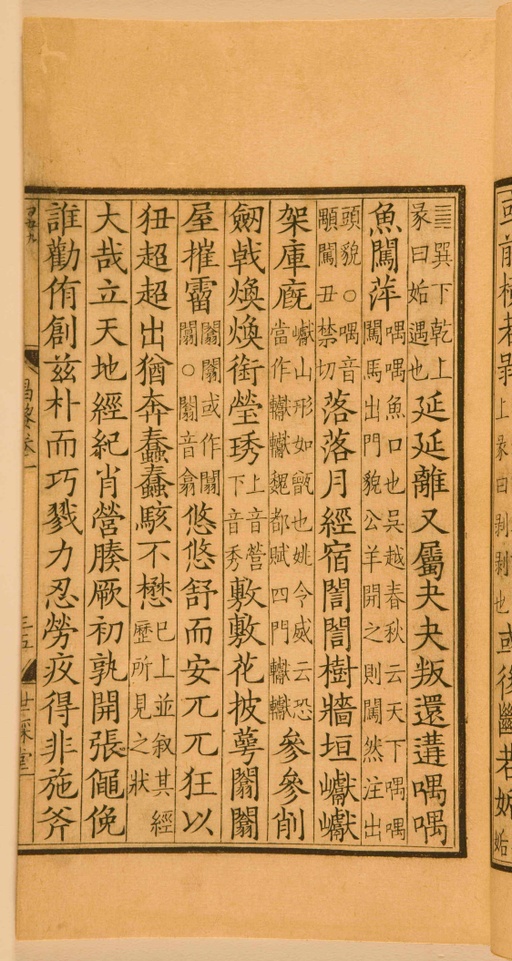 或前橫若剝上彖曰剝剝也或後斷若姤姤
䷫巽下乾上
彖曰姤遇也延延離又屬夬夬叛還遘喁喁
魚闖萍喁喁魚口也吳越春秋云天下喁喁
闖馬出門貌公羊開之則闖然注出
頭貌○喁音
顒闖丑禁切落落月經宿誾誾樹牆垣巘巘
架庫廐巘山形如甑也姚令威云恐
當作轞轞魏都賦四門轞轞參參削
劒戟煥煥銜瑩琇上音營
下音秀敷敷花披萼闟闟
屋摧霤闟闟或作闒
闒○闟音翕悠悠舒而安兀兀狂以
狃超超出猶奔蠢蠢駭不懋巳上並叙其經
歷所見之狀
大哉立天地經紀肖營腠厥初孰開張僶俛
誰勸侑創兹朴而巧戮力忍勞疚得非施斧
昌黎卷一
三五
世綵堂